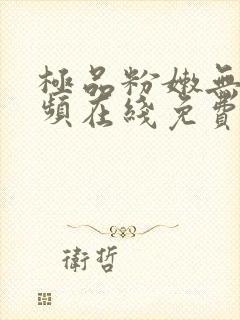 極品粉嫩無
頻在綫免費
衛哲